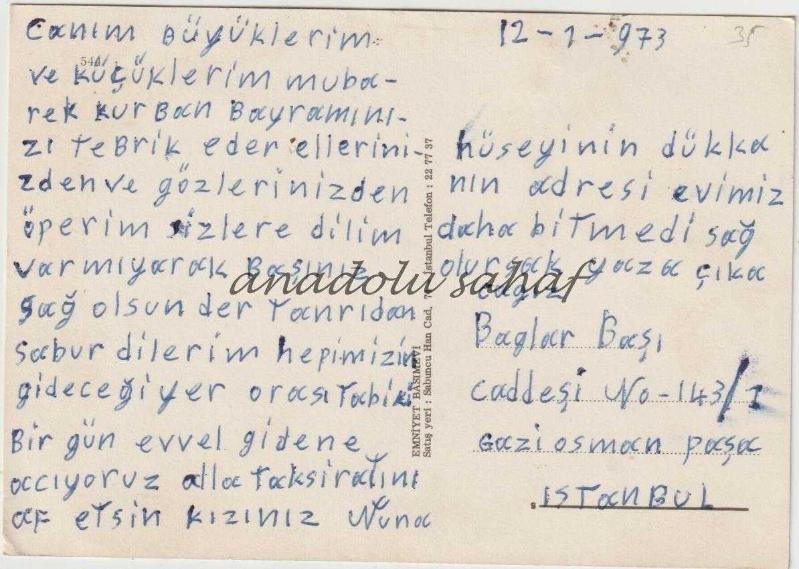 canım Büyüklerim
ve küçüklerim muba-
rek kurBan Bayramını-
zı teBrik eder ellerini-
zden ve gözlerinizden
öperim sizlere dilim
varmıyarak Başınız
sağ olsun der Tanrıdan
sabur dilerim hepimizin
gideceği yer orası Tabiki
Bir gün evvel gidene
accıyoruz alla Taksiratını
af etsin kızınız Nuna
12-1-973
35
hüseyinin dükka
nın adresi evimiz
daha bitmedi sağ
olursak yaza çıka
cağız
Baglar Başı
caddeşi No-143/1
Gaziosman paşa
ISTANBUL
EMNİYET BASIMEVİ
Satış yeri : Sabuncu Han Cad, İstanbul Telefon : 22 77 37
anadolu sahaf